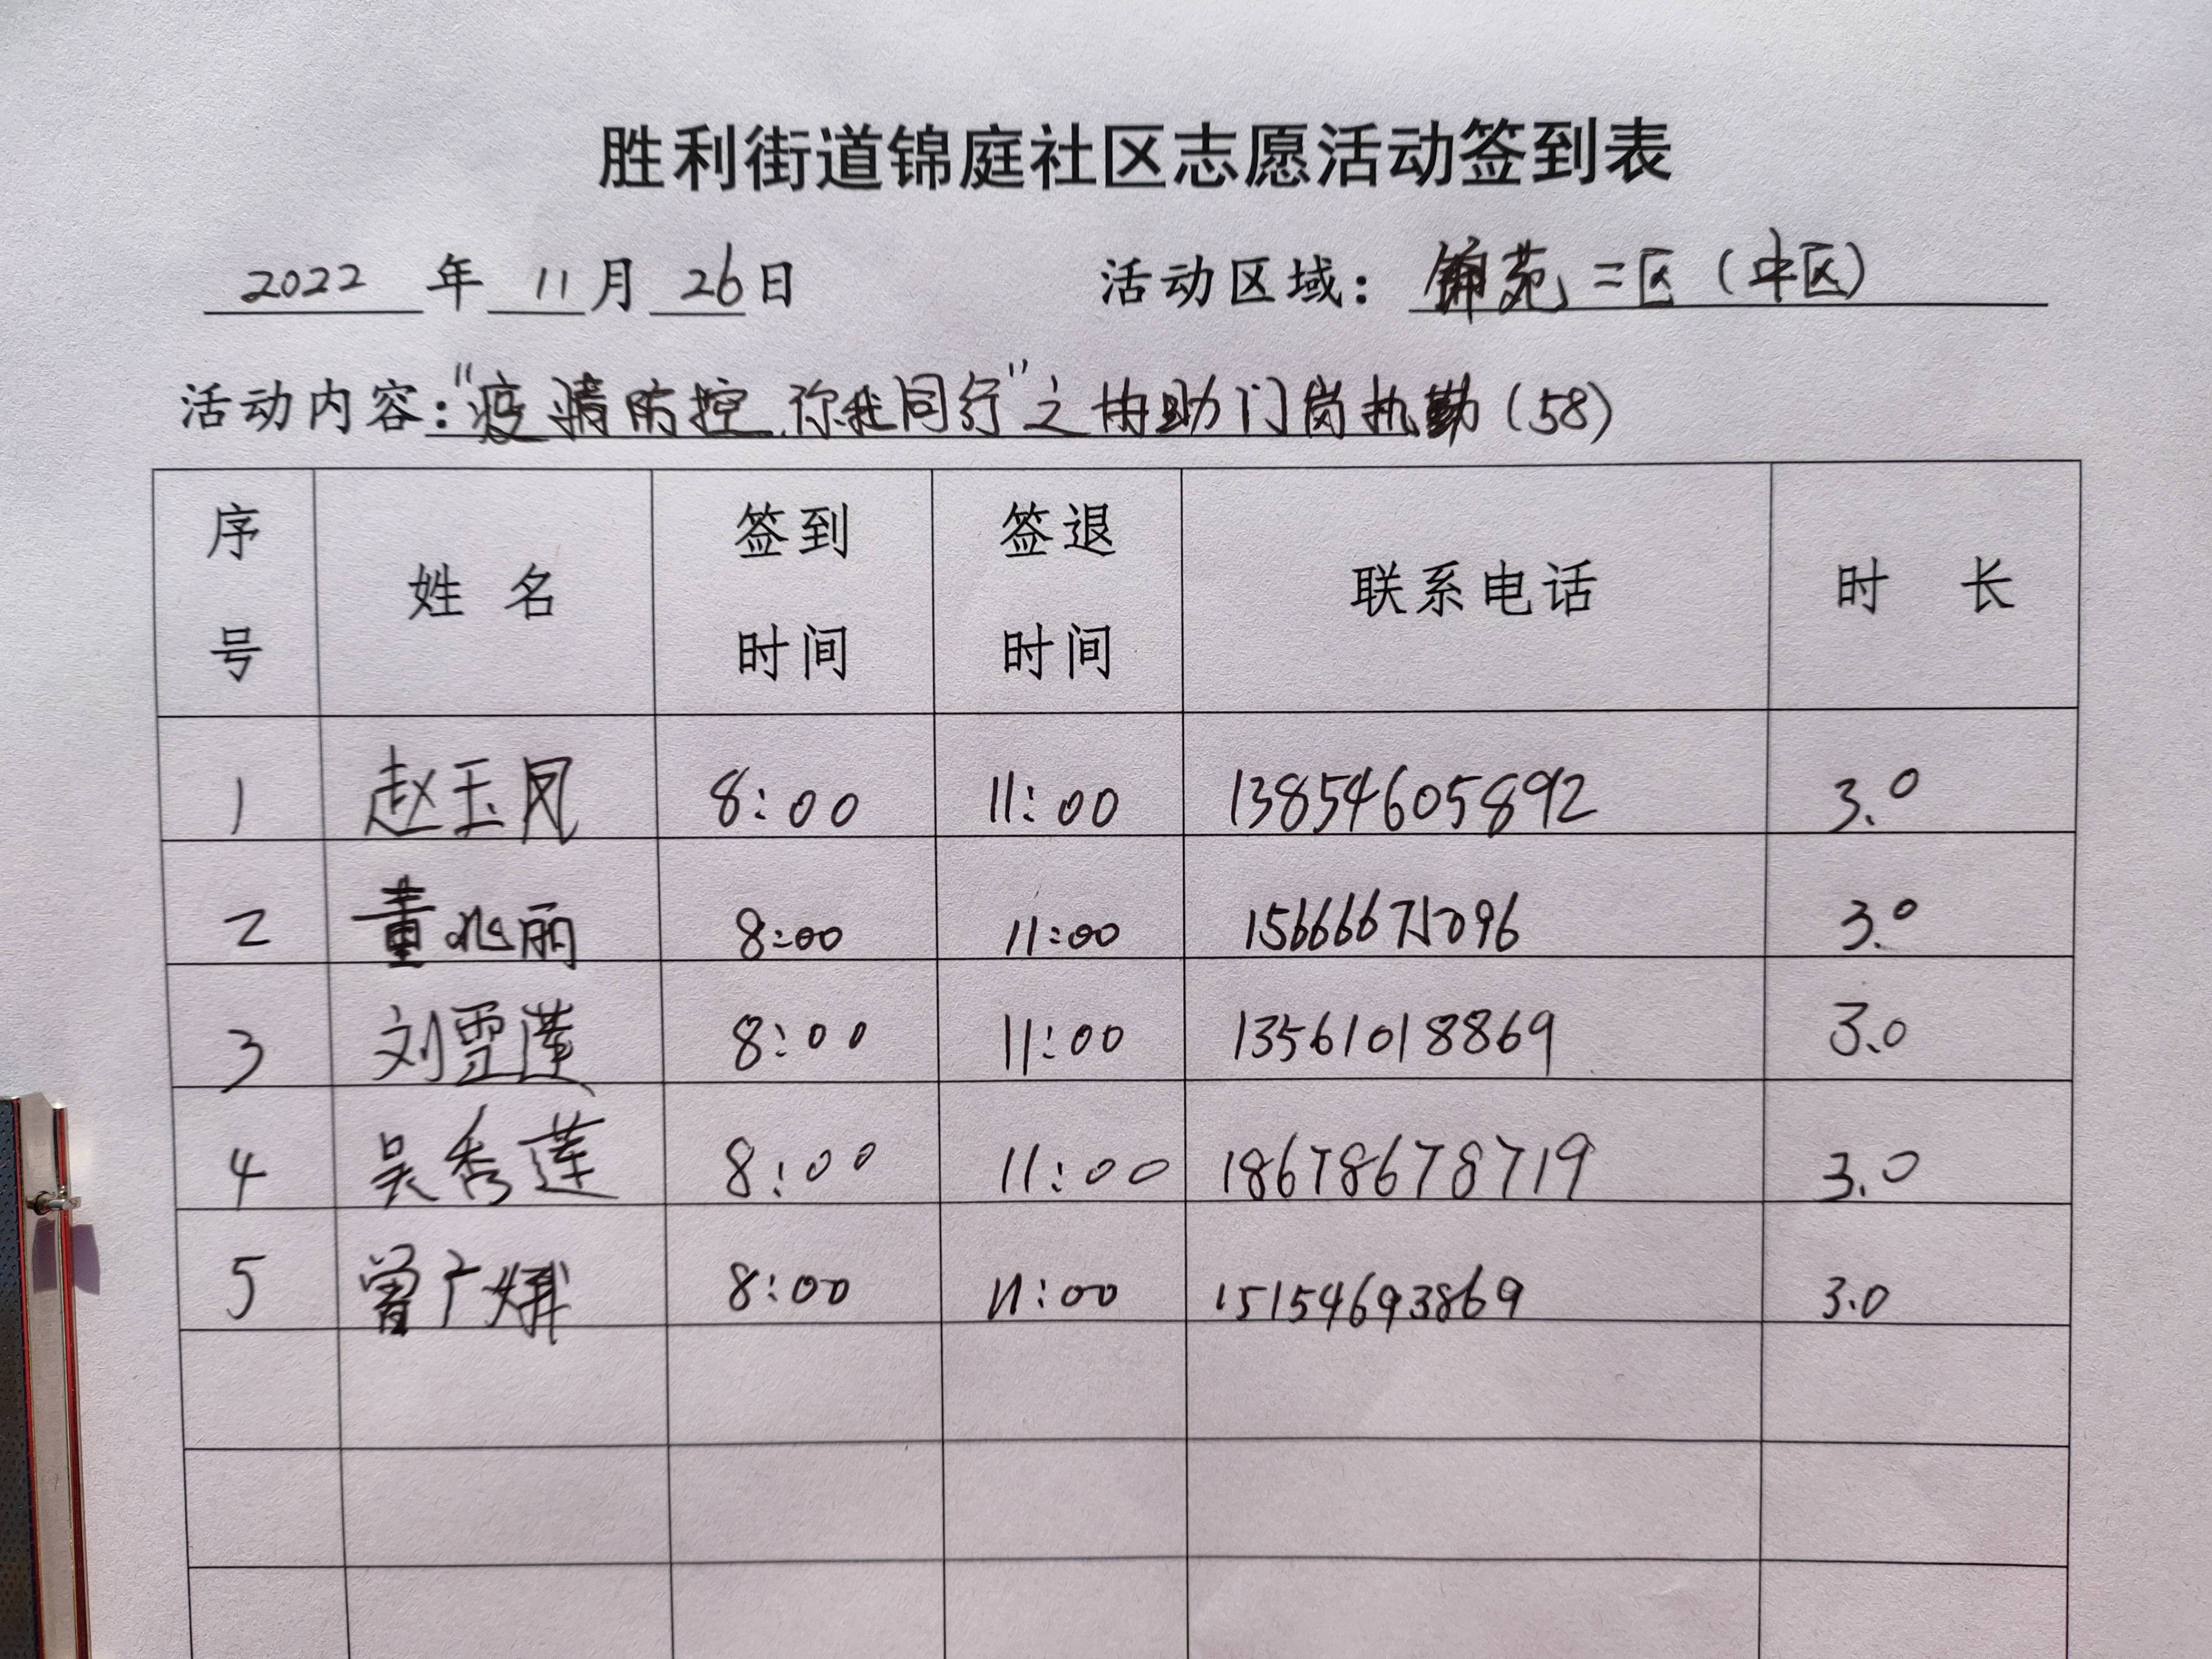 胜利街道锦庭社区志愿活动签到表
2022年11月26日 活动区域：锦苑二区（中区）
活动内容："疫情防控 你我同行"之协助门岗执勤（58）
序号 姓名 签到时间 签退时间 联系电话 时长
1 赵玉凤 8:00 11:00 13854605892 3.0
2 董兆丽 8:00 11:00 15666675096 3.0
3 刘雪莲 8:00 11:00 13561018869 3.0
4 吴秀莲 8:00 11:00 18678678719 3.0
5 曾广娥 8:00 11:00 15154693869 3.0